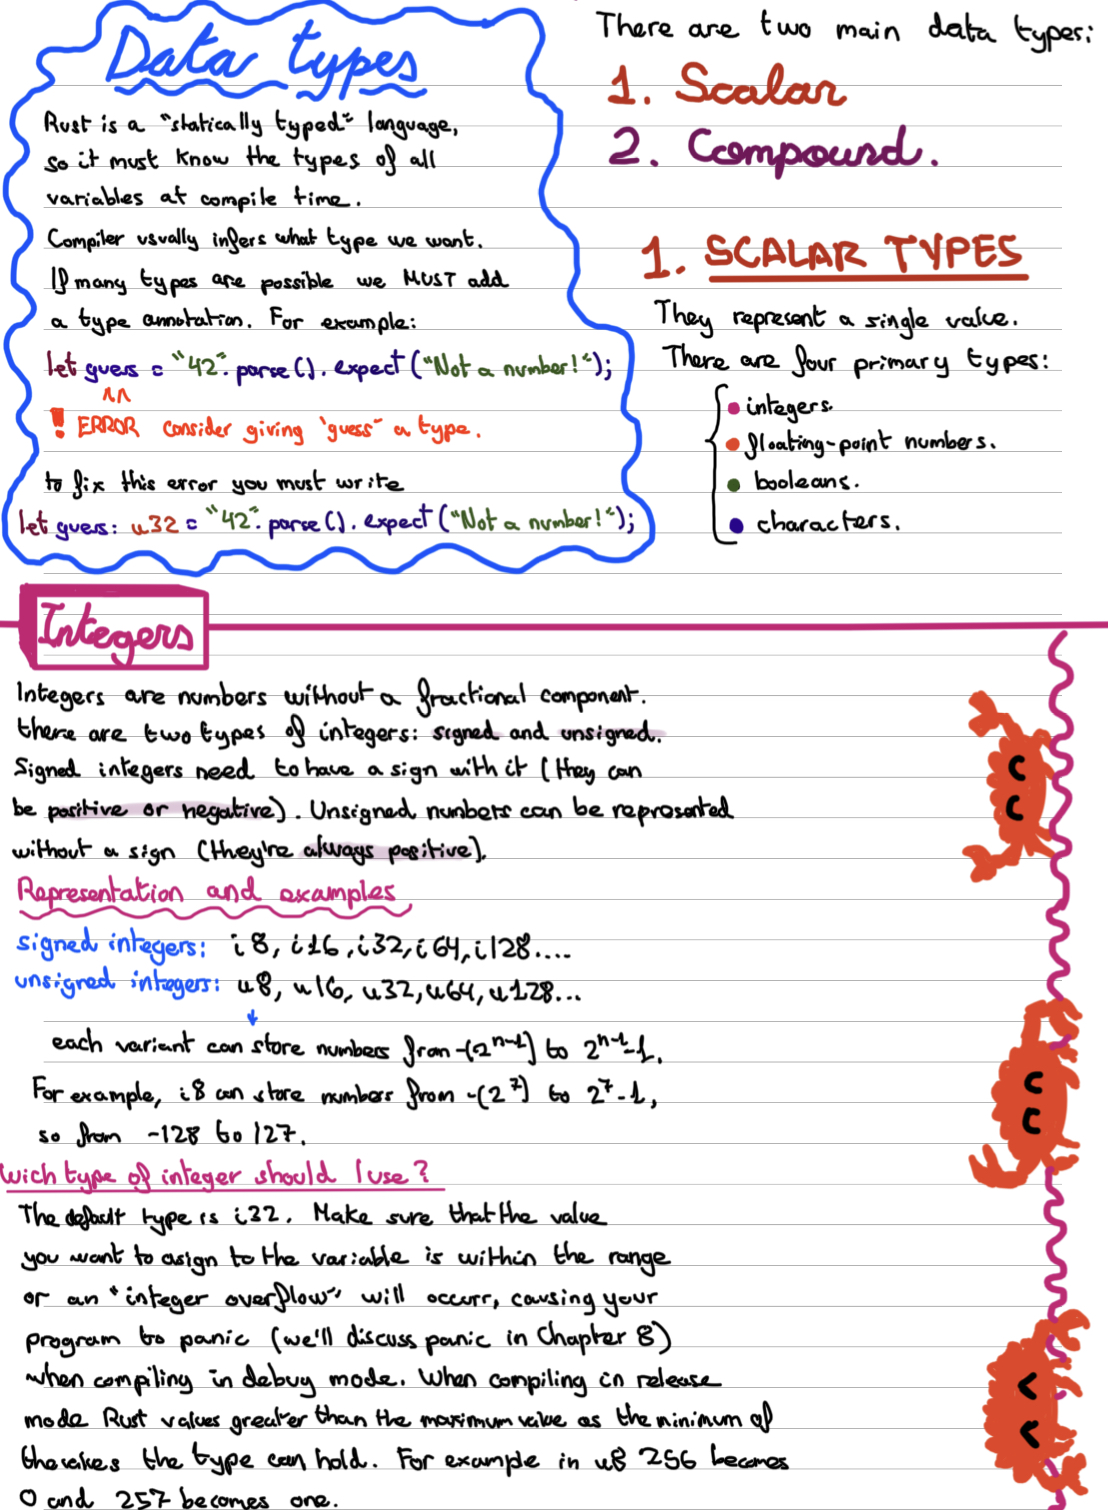 Data types
Rust is a "statically typed" language,
so it must know the types of all
variables at compile time.
Compiler usually infers what type we want.
If many types are possible we MUST add
a type annotation. For example:
let guess = "42".parse().expect("Not a number!");
! ERROR consider giving 'guess' a type.
to fix this error you must write
let guess: u32 = "42".parse().expect("Not a number!");
There are two main data types:
1. Scalar
2. Compound.
1. SCALAR TYPES
They represent a single value.
There are four primary types:
integers.
floating-point numbers.
booleans.
characters.
Integers
Integers are numbers without a fractional component.
there are two types of integers: signed and unsigned.
Signed integers need to have a sign with it (they can
be positive or negative). Unsigned numbers can be represented
without a sign (they're always positive).
Representation and examples
signed integers: i8, i16, i32, i64, i128....
unsigned integers: u8, u16, u32, u64, u128...
each variant can store numbers from -(2ⁿ⁻¹) to 2ⁿ⁻¹-1.
For example, i8 can store numbers from -(2⁷) to 2⁷-1,
so from -128 to 127.
wich type of integer should I use?
The default type is i32. Make sure that the value
you want to asign to the variable is within the range
or an "integer overflow" will occurr, causing your
program to panic (we'll discuss panic in Chapter 8)
when compiling in debug mode. When compiling in release
mode Rust values greater than the maximum value as the minimum of
the the type can hold. For example in u8 256 becomes
0 and 257 becomes one.